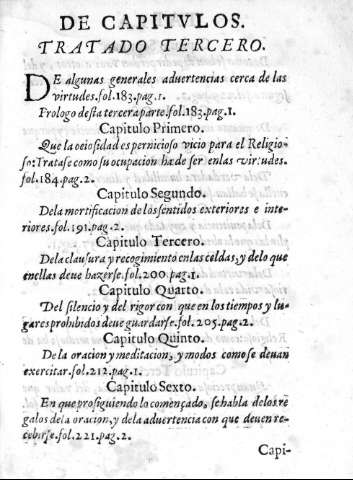 DE CAPITVLOS.
TRATADO TERCERO.
DE algunas generales aduertencias cerca de las
virtudes.fol.183.pag.1.
Prologo desta tercera parte.fol.183.pag.1.
Capitulo Primero.
Que la ociosidad es pernicioso vicio para el Religio-
so: Tratase como su ocupacion ha de ser en las virtudes.
fol.184.pag.2.
Capitulo Segundo.
De la mortificacion de los sentidos exteriores e inte-
riores.fol.191.pag.2.
Capitulo Tercero.
De la clausura y recogimiento en las celdas, y de lo que
en ellas deue hazerse.fol.200.pag.1.
Capitulo Quarto.
Del silencio y del rigor con que en los tiempos y lu-
gares prohibidos deue guardarse.fol.205.pag.2.
Capitulo Quinto.
De la oracion y meditacion, y modos como se deuan
exercitar.fol.212.pag.1.
Capitulo Sexto.
En que prosiguiendo lo començado, se habla de los re-
galos de la oracion, y de la aduertencia con que deuen re-
cebirse.fol.221.pag.2.
Capi-